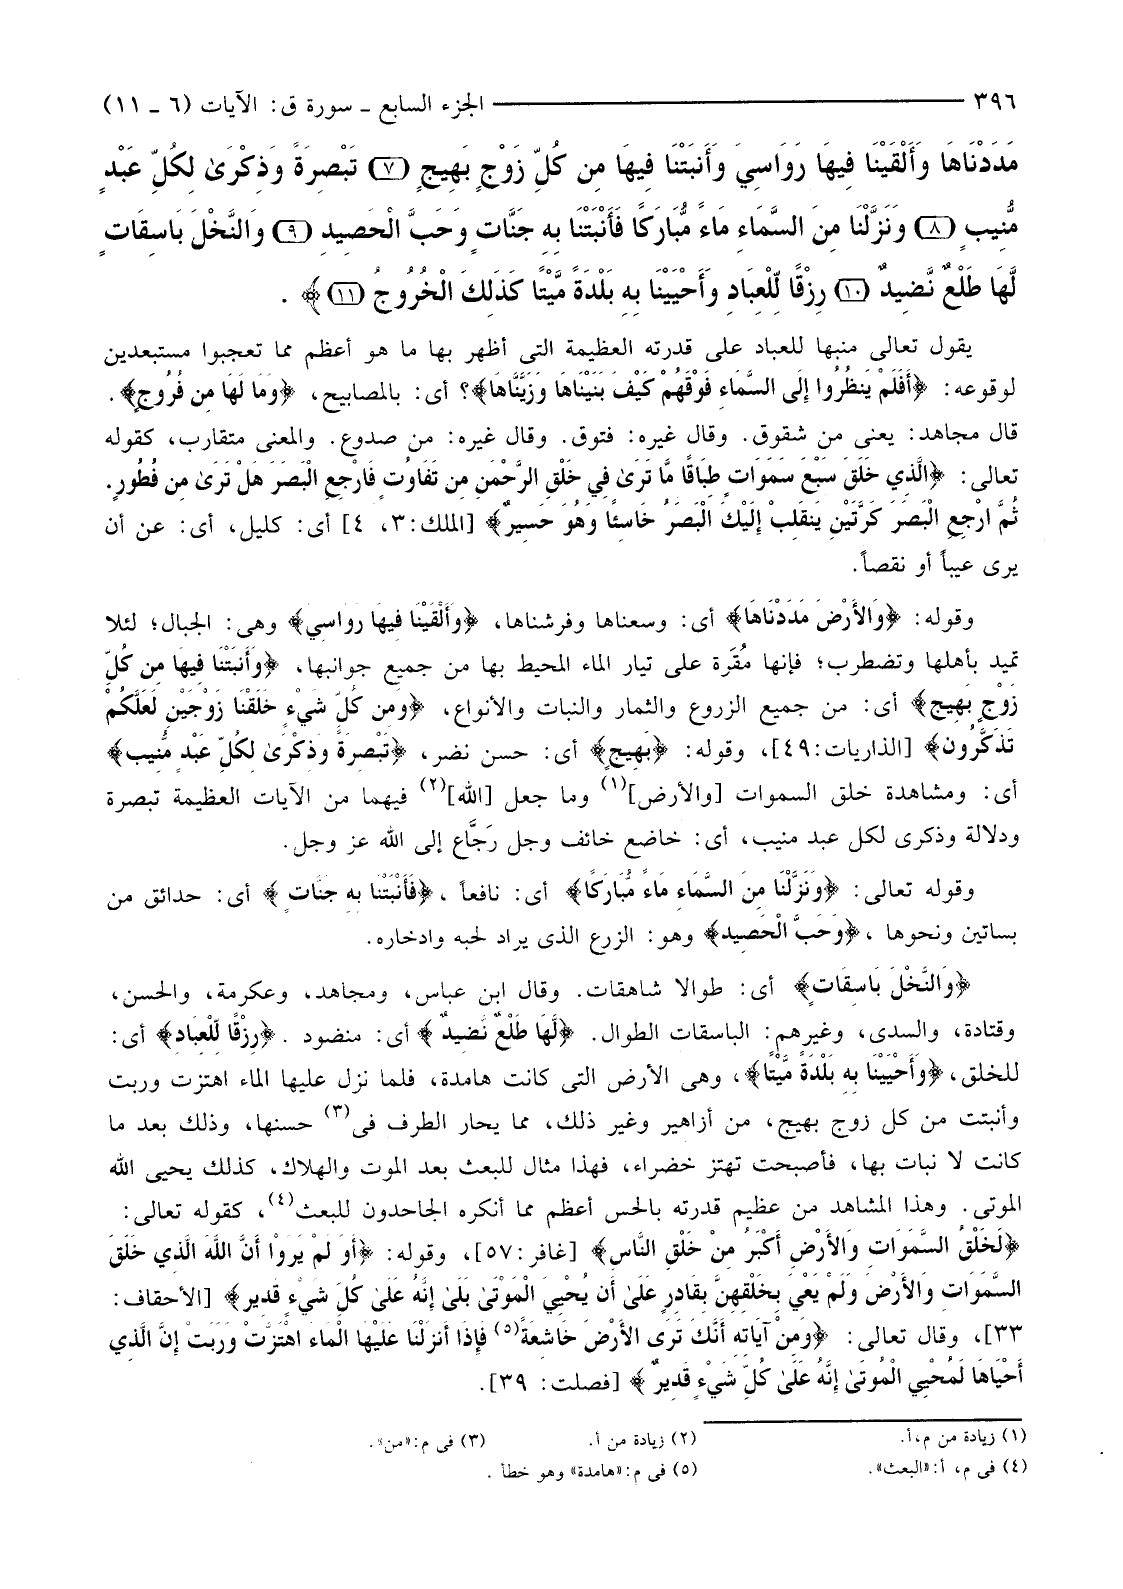 ٣٩٦ ــــــ الجزء السابع ـ سورة ق: الآيات (٦ ـ ١١)
مَدَدْنَاهَا وَأَلْقَيْنَا فِيهَا رَوَاسِيَ وَأَنبَتْنَا فِيهَا مِن كُلِّ زَوْجٍ بَهِيجٍ (٧) تَبْصِرَةً وَذِكْرَىٰ لِكُلِّ عَبْدٍ
مُّنِيبٍ (٨) وَنَزَّلْنَا مِنَ السَّمَاءِ مَاءً مُّبَارَكًا فَأَنْبَتْنَا بِهِ جَنَّاتٍ وَحَبَّ الْحَصِيدِ (٩) وَالنَّخْلَ بَاسِقَاتٍ
لَّهَا طَلْعٌ نَّضِيدٌ (١٠) رِزْقًا لِّلْعِبَادِ وَأَحْيَيْنَا بِهِ بَلْدَةً مَّيْتًا كَذَلِكَ الْخُرُوجُ (١١)﴾ .
يقول تعالى منبها للعباد على قدرته العظيمة التى أظهر بها ما هو أعظم مما تعجبوا مستبعدين
لوقوعه: ﴿أَفَلَمْ يَنظُرُوا إِلَى السَّمَاءِ فَوْقَهُمْ كَيْفَ بَنَيْنَاهَا وَزَيَّنَّاهَا﴾؟ أى: بالمصابيح، ﴿وَمَا لَهَا مِن فُرُوجٍ﴾.
قال مجاهد: يعنى من شقوق. وقال غيره: فتوق. وقال غيره: من صدوع. والمعنى متقارب، كقوله
تعالى: ﴿الَّذِي خَلَقَ سَبْعَ سَمَوَاتٍ طِبَاقًا مَّا تَرَىٰ فِي خَلْقِ الرَّحْمَنِ مِن تَفَاوُتٍ فَارْجِعِ الْبَصَرَ هَلْ تَرَىٰ مِن فُطُورٍ.
ثُمَّ ارْجِعِ الْبَصَرَ كَرَّتَيْنِ يَنقَلِبْ إِلَيْكَ الْبَصَرُ خَاسِئًا وَهُوَ حَسِيرٌ﴾ [الملك:٣، ٤] أى: كليل، أى: عن أن
يرى عيباً أو نقصاً.
وقوله: ﴿وَالأَرْضَ مَدَدْنَاهَا﴾ أى: وسعناها وفرشناها، ﴿وَأَلْقَيْنَا فِيهَا رواسِيَ﴾ وهى: الجبال؛ لئلا
تميد بأهلها وتضطرب؛ فإنها مُقَرة على تيار الماء المحيط بها من جميع جوانبها، ﴿وَأَنبَتْنَا فِيهَا مِن كُلِّ
زَوْجٍ بَهِيجٍ﴾ أى: من جميع الزروع والثمار والنبات والأنواع، ﴿وَمِن كُلِّ شَيْءٍ خَلَقْنَا زَوْجَيْنِ لَعَلَّكُمْ
تَذَكَّرُونَ﴾ [الذاريات:٤٩]، وقوله: ﴿بَهِيجٍ﴾ أى: حسن نضر، ﴿تَبْصِرَةً وَذِكْرَىٰ لِكُلِّ عَبْدٍ مُّنِيبٍ﴾
أى: ومشاهدة خلق السموات [والأرض](١) وما جعل [الله](٢) فيهما من الآيات العظيمة تبصرة
ودلالة وذكرى لكل عبد منيب، أى: خاضع خائف وجل رَجَّاع إلى الله عز وجل.
وقوله تعالى: ﴿وَنَزَّلْنَا مِنَ السَّمَاءِ مَاءً مُّبَارَكًا﴾ أى: نافعاً ،﴿فَأَنْبَتْنَا بِهِ جَنَّاتٍ ﴾ أى: حدائق من
بساتين ونحوها ،﴿وَحَبَّ الْحَصِيدِ﴾ وهو: الزرع الذى يراد لحبه وادخاره.
﴿وَالنَّخْلَ بَاسِقَاتٍ﴾ أى: طوالا شاهقات. وقال ابن عباس، ومجاهد، وعكرمة، والحسن،
وقتادة، والسدى، وغيرهم: الباسقات الطوال. ﴿لَّهَا طَلْعٌ نَّضِيدٌ ﴾ أى: منضود .﴿رِزْقًا لِّلْعِبَادِ﴾ أى:
للخلق،﴿وَأَحْيَيْنَا بِهِ بَلْدَةً مَّيْتًا﴾، وهى الأرض التى كانت هامدة، فلما نزل عليها الماء اهتزت وربت
وأنبتت من كل زوج بهيج، من أزاهير وغير ذلك، مما يحار الطرف فى(٣) حسنها، وذلك بعد ما
كانت لا نبات بها، فأصبحت تهتز خضراء، فهذا مثال للبعث بعد الموت والهلاك، كذلك يحيى الله
الموتى. وهذا المشاهد من عظيم قدرته بالحس أعظم مما أنكره الجاحدون للبعث(٤)، كقوله تعالى:
﴿لَخَلْقُ السَّمَوَاتِ وَالأَرْضِ أَكْبَرُ مِنْ خَلْقِ النَّاسِ﴾ [غافر:٥٧]، وقوله: ﴿أَوَ لَمْ يَرَوْا أَنَّ اللَّهَ الَّذِي خَلَقَ
السَّمَوَاتِ وَالأَرْضَ وَلَمْ يَعْيَ بِخَلْقِهِنَّ بِقَادِرٍ عَلَىٰ أَن يُحْيِيَ الْمَوْتَىٰ بَلَى إِنَّهُ عَلَىٰ كُلِّ شَيْءٍ قَدِير﴾ [الأحقاف:
٣٣]، وقال تعالى: ﴿وَمِنْ آيَاتِهِ أَنَّكَ تَرَى الأَرْضَ خَاشِعَةً(٥) فَإِذَا أَنزَلْنَا عَلَيْهَا الْمَاءَ اهْتَزَّتْ وَرَبَتْ إِنَّ الَّذِي
أَحْيَاهَا لَمُحْيِي الْمَوْتَىٰ إِنَّهُ عَلَىٰ كُلِّ شَيْءٍ قَدِيرٌ ﴾ [فصلت: ٣٩].
(١) زيادة من م،أ. (٢) زيادة من أ. (٣) فى م:«من».
(٤) فى م، أ:«البعث». (٥) فى م:«هامدة» وهو خطأ .